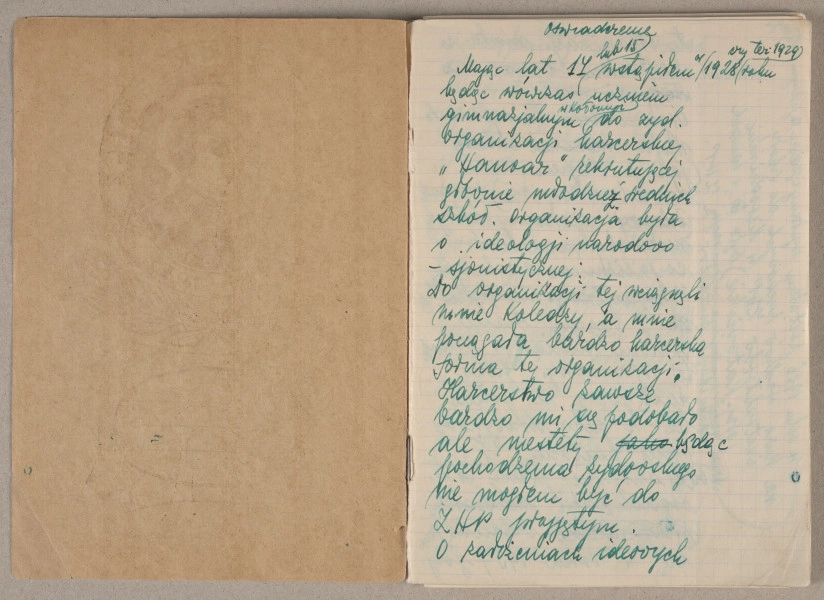 Oświadczenie
lub 15) czy też 1929)
Mając lat 17 wstąpiłem w /1928/ roku
będąc wówczas uczniem
w Kołomyji
gimnazjalnym do żyd.
organizacji harcerskiej
„Hanoar" rekrutującej
głównie młodzież średnich
szkół. Organizacja była
o ideologji narodowo
- sjonistycznej.
Do organizacji tej wciągnęli
mnie koledzy, a mnie
pociągała bardzo harcerska
forma tej organizacji.
Harcerstwo zawsze
bardzo mi się podobało
ale niestety będąc
pochodzenia żydowskiego
nie mogłem być do
ZHP przyjętym.
O założeniach ideowych